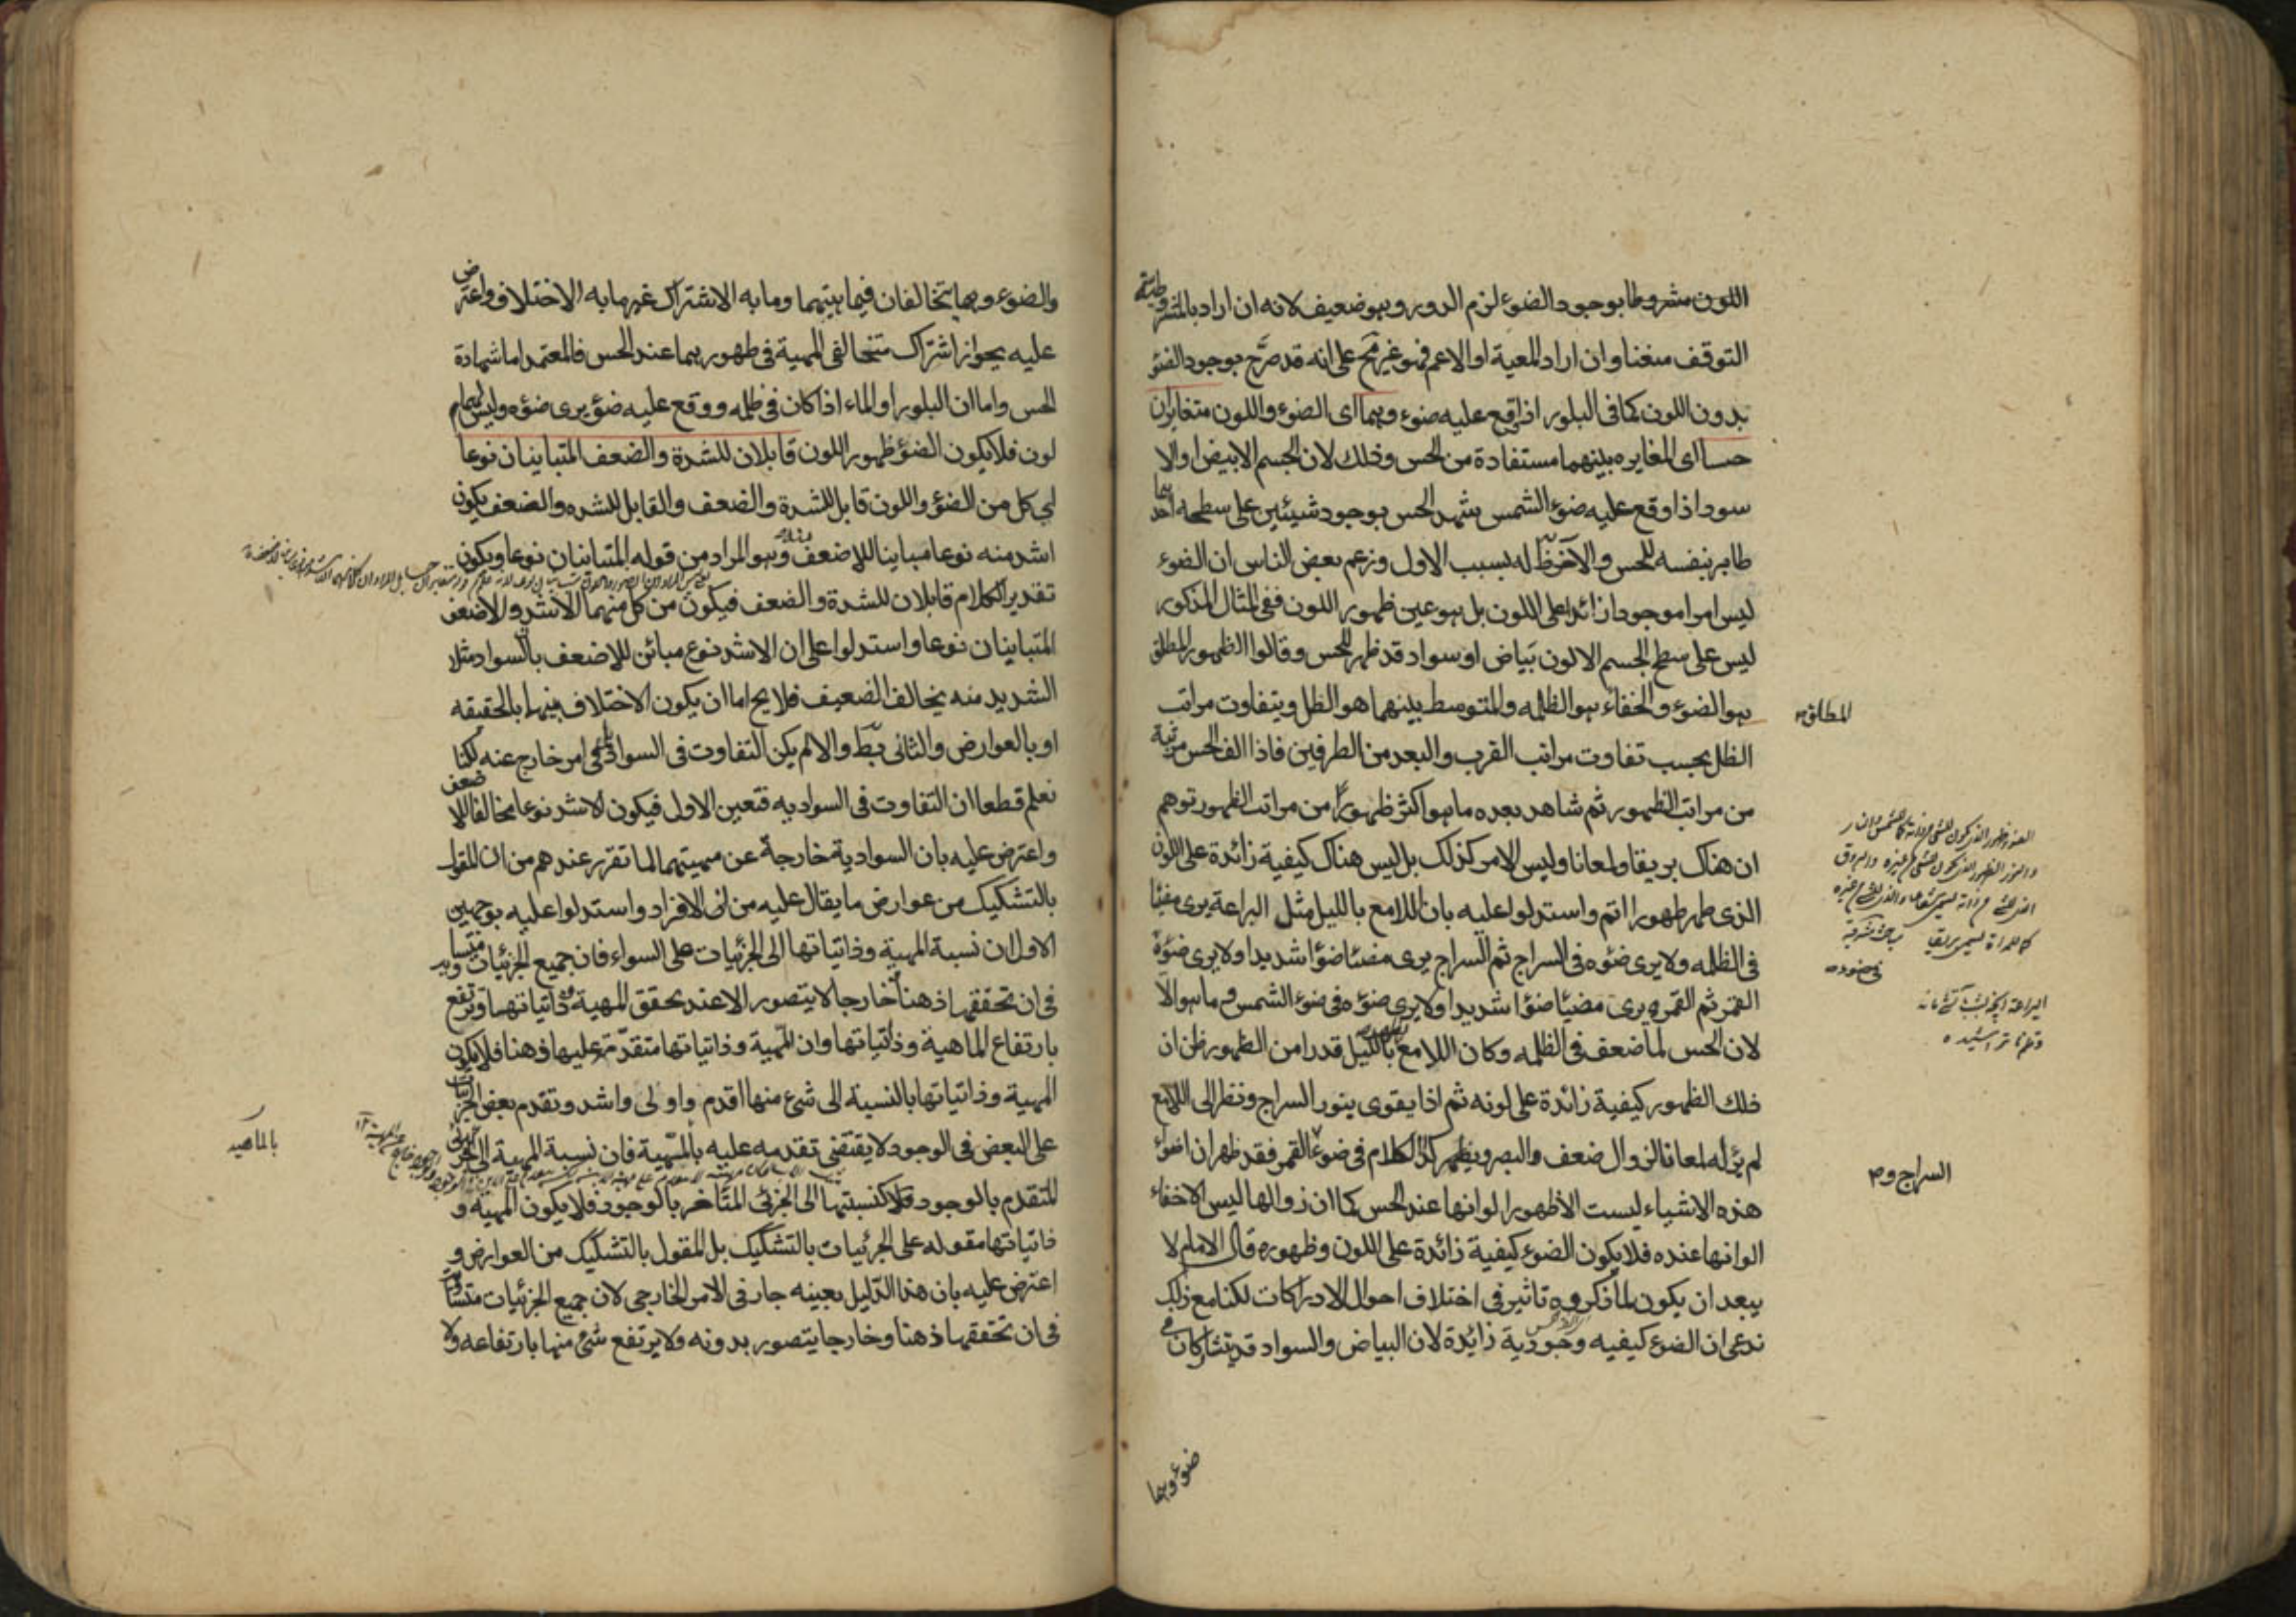 اللون مشروطا بوجود الضوء لزم الدور وهو ضعيف لانه ان اراد بالمشروطية
التوقف منعنا وان اراد المعية او الاعم فهو غير مح على انه قد صرح بوجود الضوء
بدون اللون كما في البلور اذا وقع عليه ضوء وهما اى الضوء واللون متغايران
حسا اى المغايره بينهما مستفادة من الحس وذلك لان الجسم الابيض او الا
سود اذا وقع عليه ضوء الشمس يشهد الحس بوجود شيئين على سطحه احدهما
ظاهر بنفسه للحس والآخر ظ له بسبب الاول وزعم بعض الناس ان الضوء
ليس امرا موجودا زائدا على اللون بل هو عين ظهور اللون ففى المثال المذكور
ليس على سطح الجسم الا لون بياض او سواد قد ظهر للحس وقالوا الظهور المطلق
هو الضوء والخفاء هو الظلمه والمتوسط بينهما هو الظل ويتفاوت مراتب
المطلق
الظل بحسب تفاوت مراتب القرب والبعد من الطرفين فاذا الف الحس مرتبة
من مراتب الظهور ثم شاهد بعده ما هو اكثر ظهورا من مراتب الظهور توهم
ان هناك بريقا ولمعانا وليس الامر كذلك بل ليس هناك كيفية زائدة على اللون
الذى ظهر ظهورا اتم واستدلوا عليه بان اللامع بالليل مثل البراعة يرى مضيئا
فى الظلمه ولا يرى ضوءه فى السراج ثم السراج يرى مضيئا ضوءا شديدا ولا يرى ضوءه
القمر ثم القمر يرى مضيئا ضوءا شديدا ولا يرى ضوءه فى ضوء الشمس وما هو الا
لان الحس لما ضعف فى الظلمه وكان اللامع بالليل قدرا من الظهور ظن ان
ذلك الظهور كيفية زائدة على لونه ثم اذا يقوى بنور السراج ونظر الى اللامع
لم ير له لمعانا لزوال ضعف البصر ويظهر كذا الكلام فى ضوء القمر فقد ظهر ان اضواء
السراج وص
هذه الاشياء ليست الا ظهور الوانها عند الحس كما ان زوالها ليس الا خفاء
الوانها عنده فلا يكون الضوء كيفية زائدة على اللون وظهوره قال الامام لا
يبعد ان يكون لما ذكروه تاثير فى اختلاف احوال الادراكات لكنا مع ذلك
ندعى ان الضوء كيفيه وجودية زايدة لان البياض والسواد قد يتشاركان فى
ضوء وهما
والضوء وهما يتخالفان فيما بينهما وما به الاشتراك غير ما به الاختلاف واعترض
عليه بجواز اشتراك متخالفى المهية فى ظهورهما عند الحس فالمعتمد اما شهادة
الحس واما ان البلور او الماء اذا كان فى ظلمه ووقع عليه ضوء يرى ضوءه وليس لهما
لون فلا يكون الضوء ظهور اللون قابلان للشدة والضعف المتباينان نوعا
اى كل من الضوء واللون قابل للشدة والضعف والقابل للشده والضعف يكون
اشد منه نوعا مباينا للاضعف وهو المراد من قوله المتباينان نوعا ويكون
تقدير الكلام قابلان للشدة والضعف فيكون من كل منهما الاشد والاضعف
المتباينان نوعا واستدلوا على ان الاشد نوع مبائن للاضعف بالسواد مثلا
الشديد منه يخالف الضعيف فلا يخ اما ان يكون الاختلاف فيهما بالحقيقه
او بالعوارض والثانى بط والا لم يكن التفاوت فى السواد بل فى امر خارج عنه لكنا
نعلم قطعا ان التفاوت فى السواديه فتعين الاول فيكون الاشد نوعا مخالفا للاضعف
واعترض عليه بان السوادية خارجة عن مهيتهما لما تقرر عندهم من ان المقول
بالتشكيك من عوارض ما يقال عليه من الافراد واستدلوا عليه بوجهين
الاول ان نسبة المهية وذاتياتها الى الجزئيات على السواء فان جميع الجزئيات متساوية
فى ان تحققها ذهنا وخارجا لا يتصور الا عند تحقق المهية وذاتياتها وترتفع
بارتفاع الماهية وذاتياتها وان المهية وذاتياتها متقدمة عليها ذهنا فلا يكون
المهية وذاتياتها بالنسبة الى شئ منها اقدم واولى واشد وتقدم بعض الجزئيات
على البعض فى الوجود لا يقتضى تقدمه عليه بالمهية فان نسبة المهية الى الجزئى
بالماهيه
المتقدم بالوجود كنسبتها الى الجزئى المتاخر بالوجود فلا يكون المهية و
ذاتياتها مقوله على الجزئيات بالتشكيك بل المقول بالتشكيك من العوارض و
اعترض عليه بان هذا الدليل بعينه جار فى الامر الخارجى لان جميع الجزئيات متساوية
فى ان تحققها ذهنا وخارجا يتصور بدونه ولا يرتفع شئ منها بارتفاعه ولا